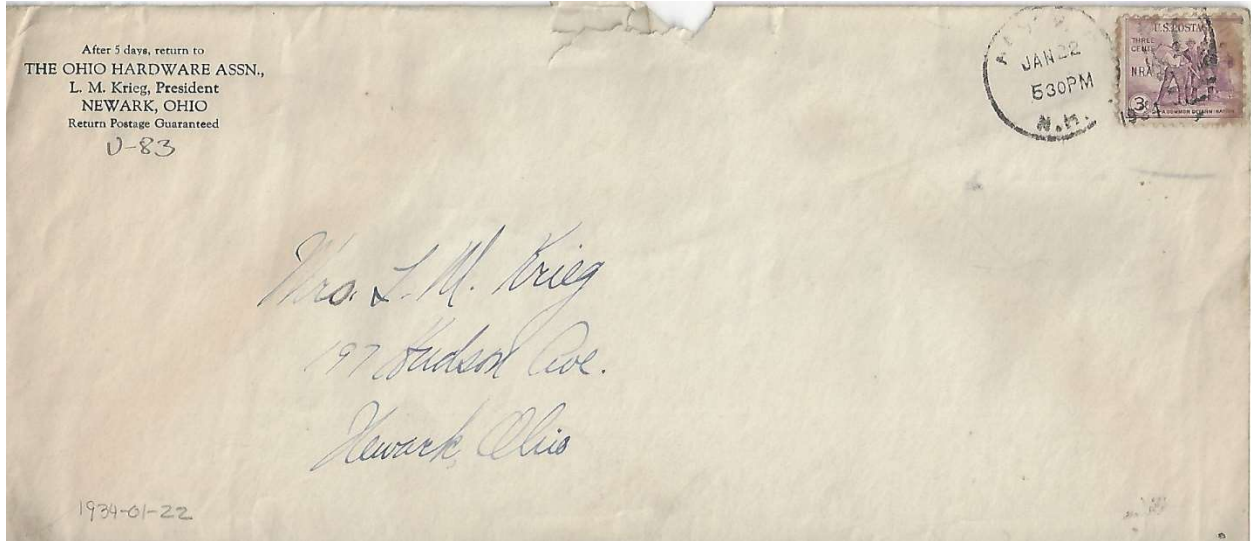 After 5 days, return to
THE OHIO HARDWARE ASSN.,
L. M. Krieg, President
NEWARK, OHIO
Return Postage Guaranteed
U-83
JAN 22
530PM
N.M.
1934
U.S. POSTA
THREE
CENTS
N.R.A.
3¢
Mrs. L. M. Krieg
197 Hudson Ave.
Newark, Ohio
1934-01-22